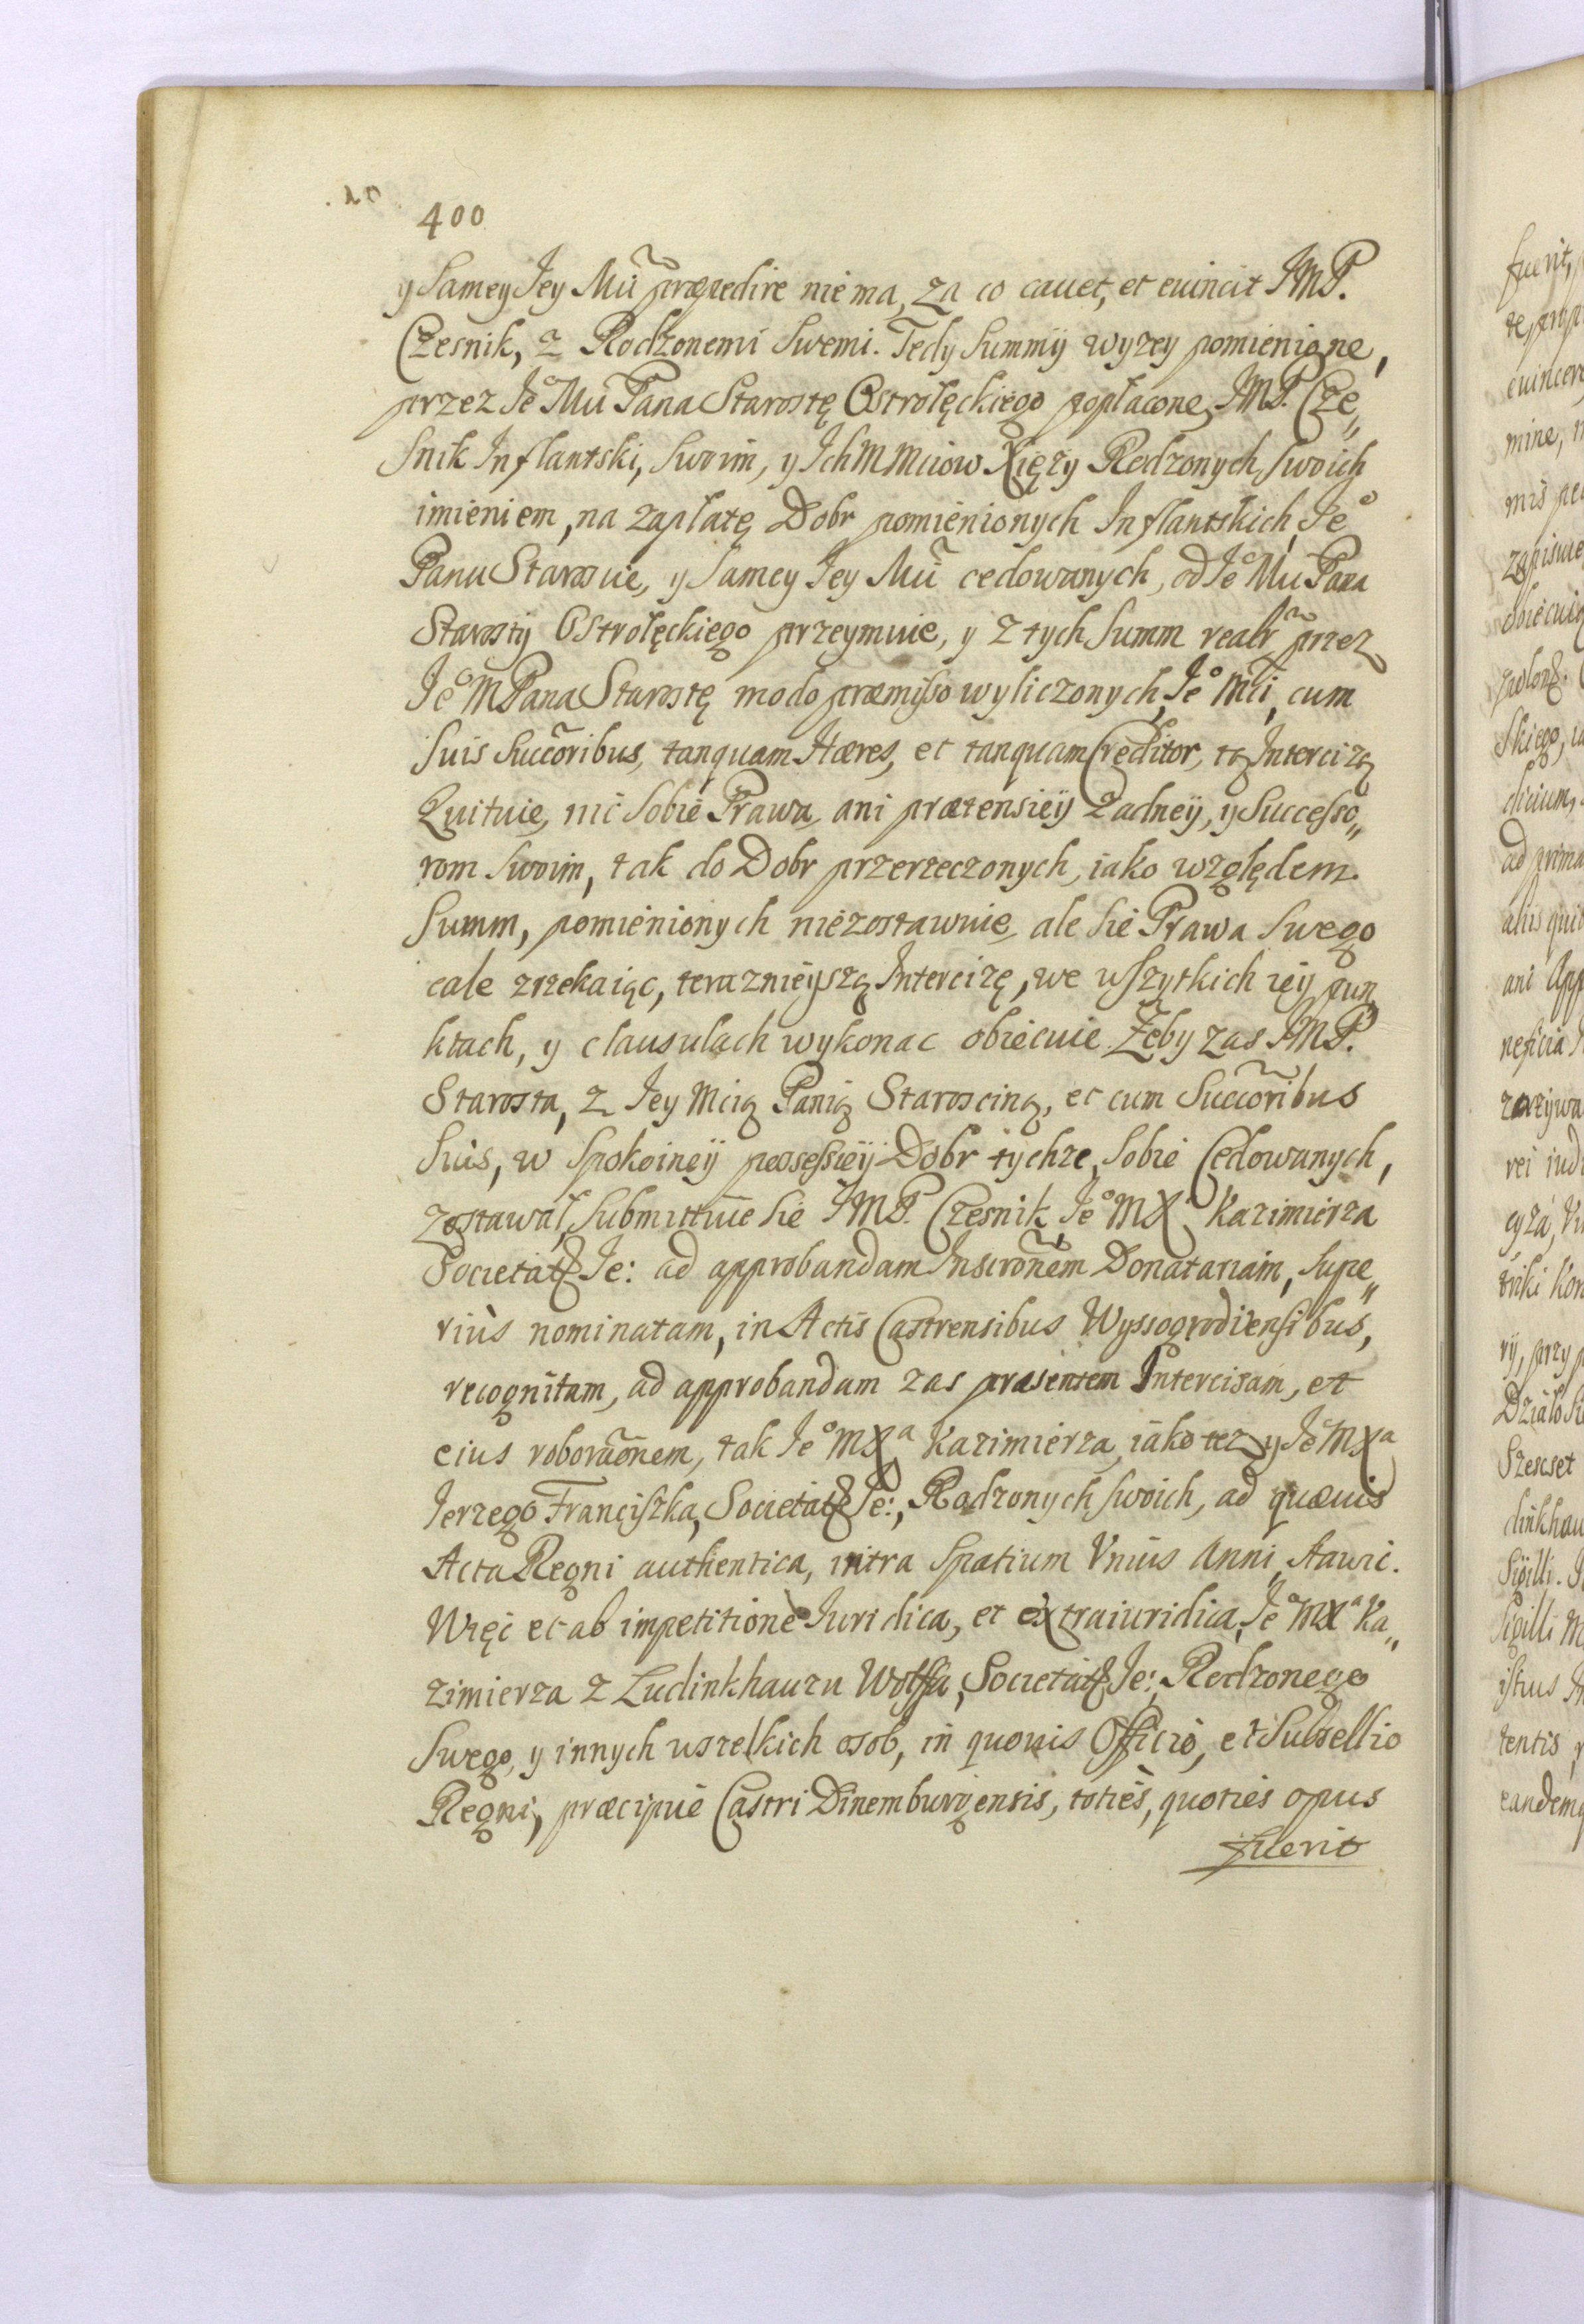 400
y Samey Jey Mci præpedire nie ma, za co cauet, et euincit JMP.
Czesnik, z Rodzonemi Swemi. Tedy Summÿ wyzey pomienione,
przez Jeº Mci Pana Starostę Ostrołęckiego popłacone, JMP. Cze„
snik Inflantski, Swoim, y Ich M Mciow Xięży Rodzonych swoich
imieniem, na zapłatę Dobr pomienionych Inflantskich, Jeº
Panu Staroscie, y Samey Jey Mci cedowanych, od Jeº Mci Pana
Starosty Ostrołęckiego przeymuie, y z tych Summ realr przez
Jeº M Pana Starostę modo præmisso wyliczonych, Jeº Mci, cum
Suis Succoribus, tanquam Hæres, et tanquam Creditor, tą Intercizą
Quituie, nic Sobie Prawa, ani prætensieÿ zadneÿ, y Successo„
rom Swoim, tak do Dobr przerzeczonych, iako względem
Summ, pomienionych niezostawuie, ale sie Prawa Swego
cale zrzekaiąc, teraznieÿszą Intercizę, we wszytkich ieÿ pun
ktach, y clausulach wykonac obiecuie. Zeby zas JMP.
Starosta, z Jey Mcią Panią Staroscina, et cum Succoribus
Suis, w Spokoineÿ possessieÿ Dobr tychze, Sobie Cedowanych,
zostawał, Submittuie sie JMP. Czesnik, Jeº MXª Kazimierza
Societatis Je: ad approbandam Inscronem Donatariam, Supe„
riùs nominatam, in Actis Castrensibus Wyssogrodiensibus,
recognitam, ad approbandam zas præsentem Intercisam, et
eius roboraonem, tak Jeº MXª Kazimierza, iako tez y Jeº MXª
Jerzego Franciszka, Societatis Je:, Rodzonych swoich, ad quæuis
Acta Regni authentica, intra Spatium Vnius Anni, stawic.
Więc et ab impetitione Iuridica, et extraiuridica, Jeº MXª Ka„
zimierza z Ludinkhauzu Wolffa, Societatis Je:, Rodzonego
Swego, y innych wszelkich osob, in quouis Officio, et Subsellio
Regni, præcipuè Castri Dinemburgensis, toties, quoties opus
fuerit